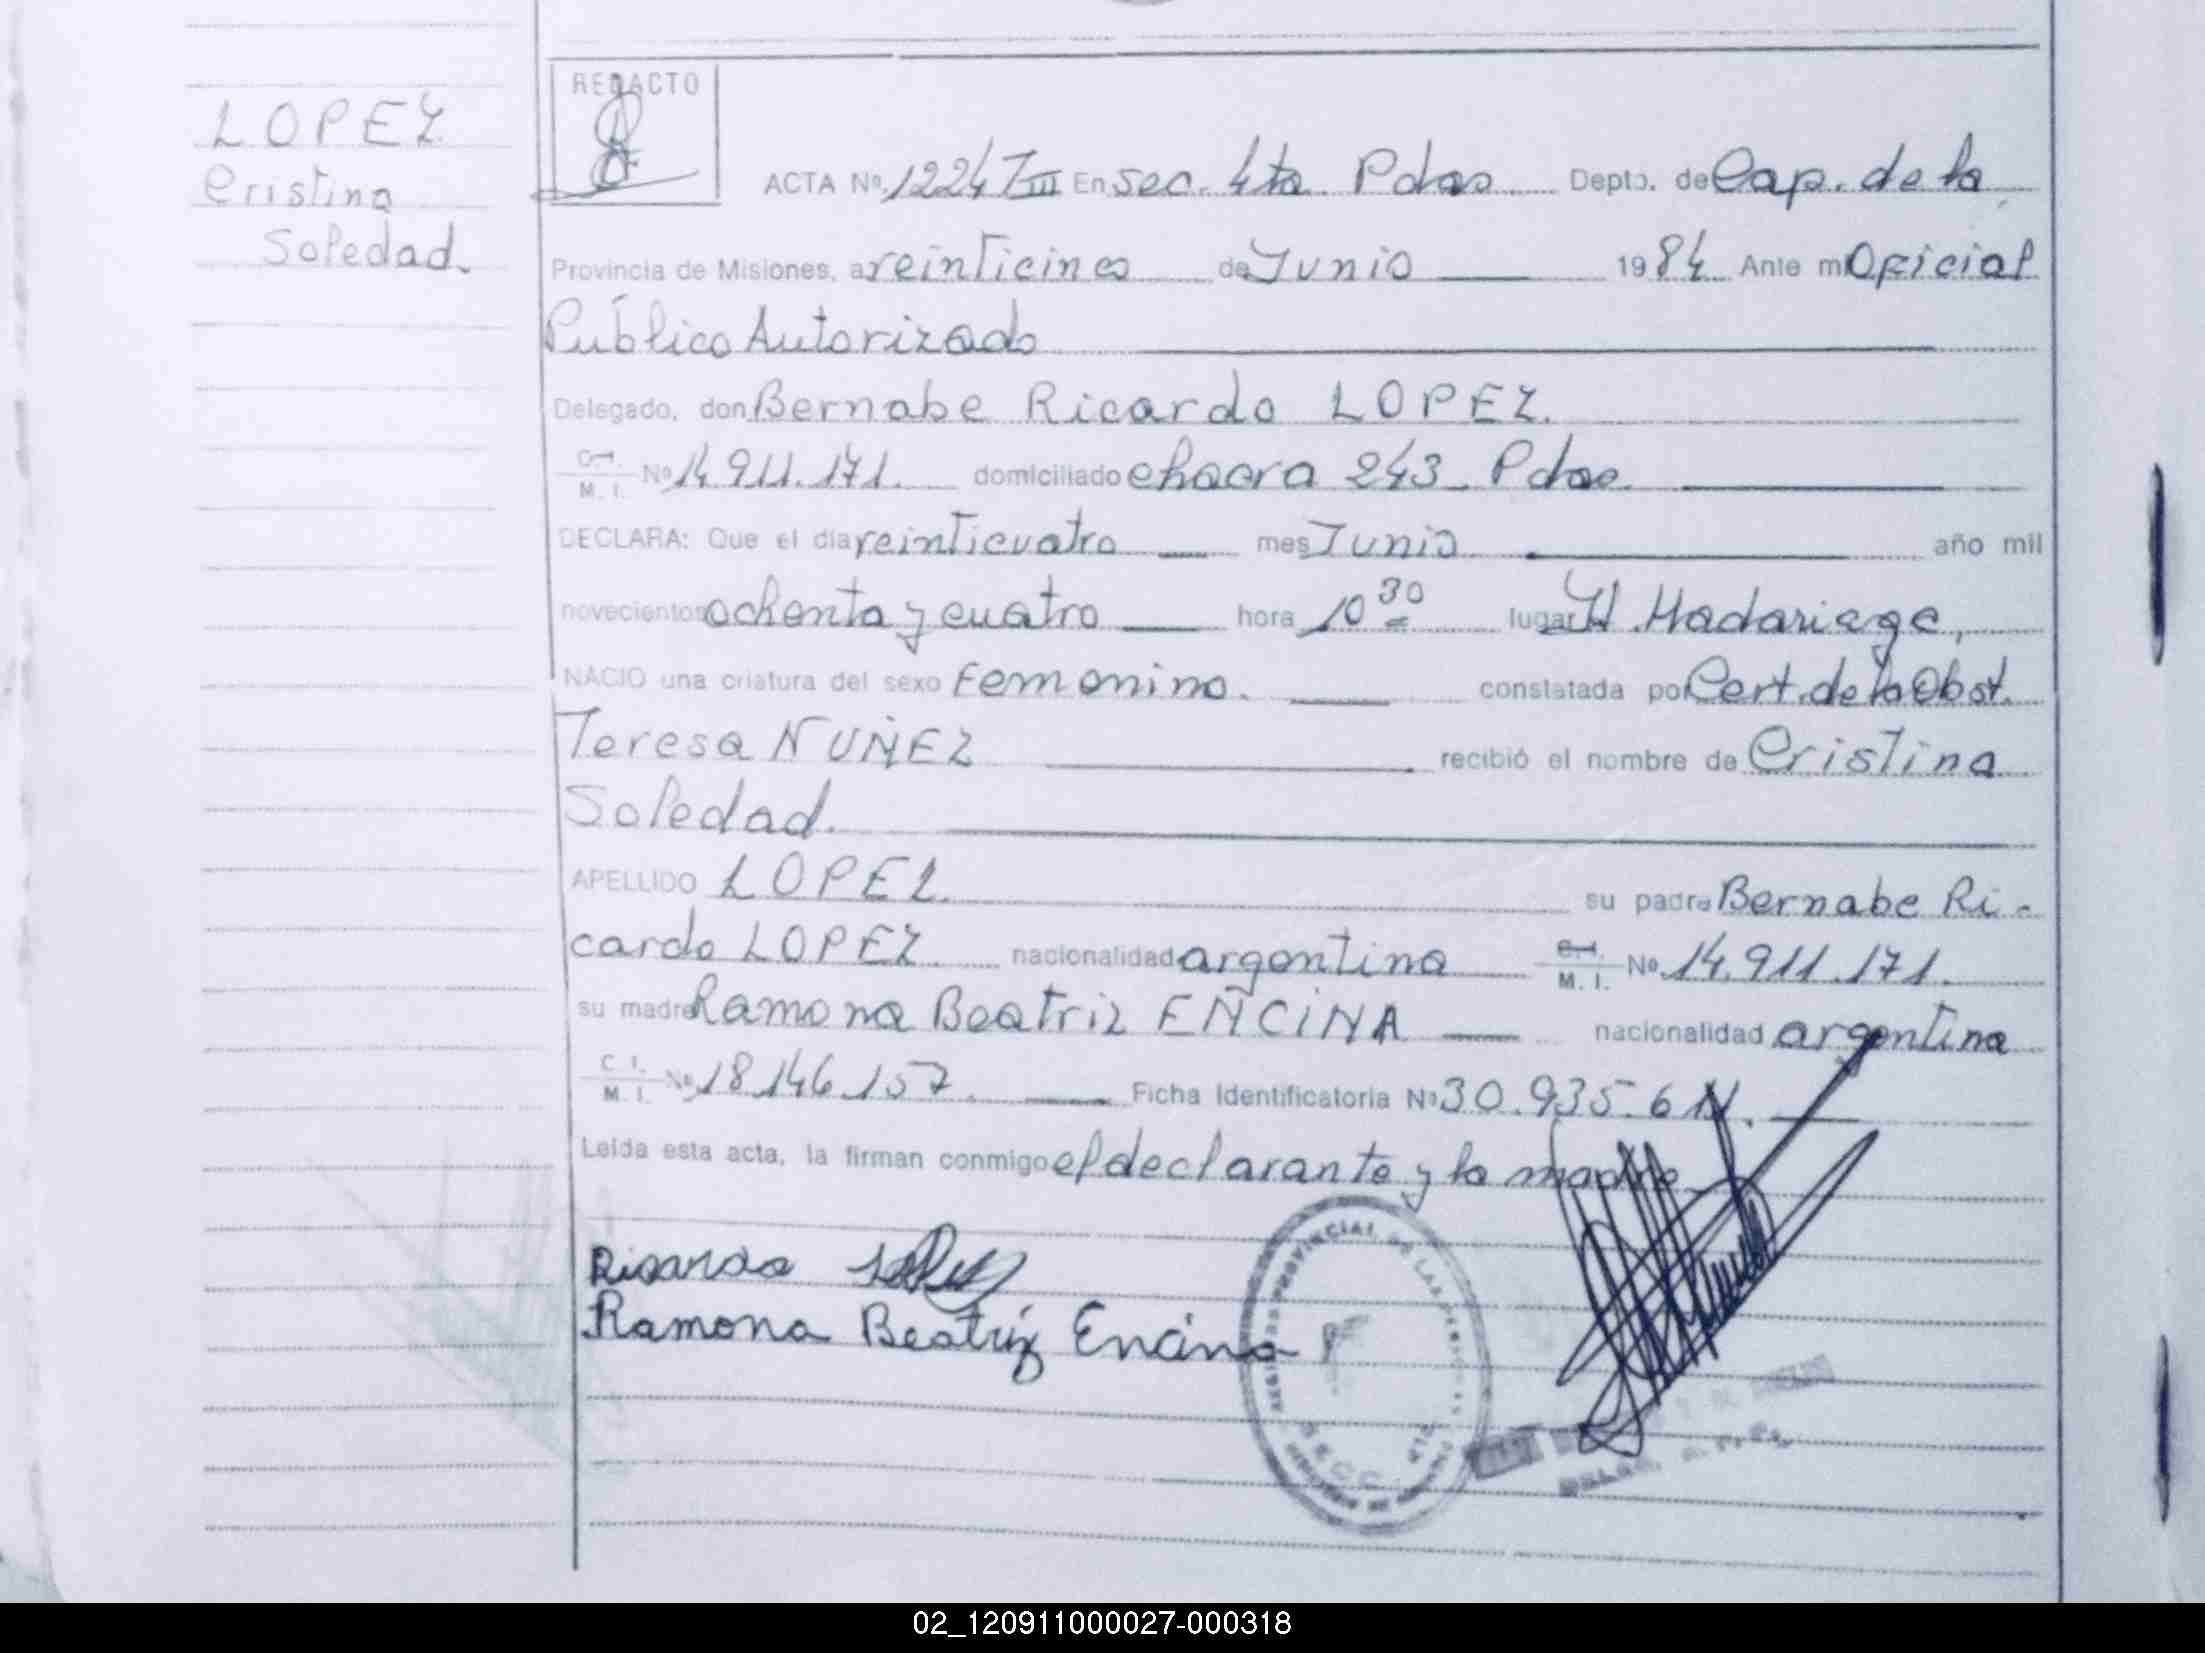 LOPEZ
Cristina
Soledad.
REDACTO
ACTA Nº 1224 T III En sec. 4ta Pdas Depto. de Cap. de la
Provincia de Misiones, a veinticinco de Junio 1984 Ante mi Oficial
Público Autorizado
Delegado, don Bernabe Ricardo LOPEZ.
C.I. M. I. Nº 14.911.171. domiciliado chacra 243 Pdas.
DECLARA: Que el día veinticuatro mes Junio año mil
novecientos ochenta y cuatro hora 10 30 lugar H. Madariaga,
NACIO una criatura del sexo Femenino. constatada por Cert. de la Obst.
Teresa NUÑEZ recibió el nombre de Cristina
Soledad.
APELLIDO LOPEZ. su padre Bernabe Ri-
cardo LOPEZ. nacionalidad argentina C.I. M. I. Nº 14.911.171.
su madre Ramona Beatriz ENCINA nacionalidad argentina
C. I. M. I. Nº 18.146.157. Ficha Identificatoria Nº 30.935.6 N.
Leída esta acta, la firman conmigo el declarante y la madre
Ricardo Lopez
Ramona Beatriz Encina
REGISTRO PROVINCIAL DE LAS PERSONAS
02_120911000027-000318